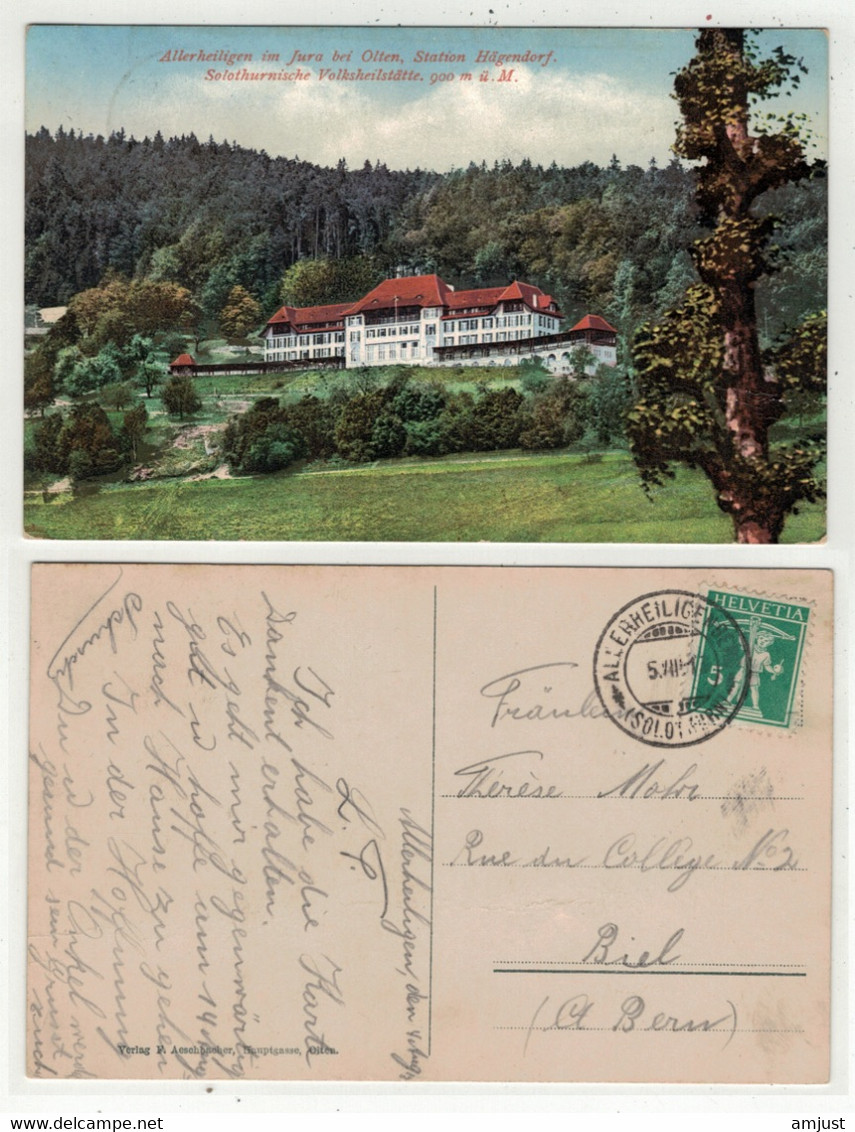 Allerheiligen im Jura bei Olten, Station Hägendorf.
Solothurnische Volksheilstätte. 900 m ü. M.
HELVETIA
5
ALLERHEILIGEN
5.VIII.1
(SOLOTHURN)
Fräulein
Thérèse Mohr
Rue du Collège No. 2
Biel
(Ct Bern)
Allerheiligen, den 4 Aug.
L. T.
Ich habe die Karte
Dankent erhalten.
Es geht mir gegenwärtig
gut u hoffe um 14 Aug
nach Hause zu gehen
In der Hoffnung
Du u der Onkel werde
gesund sein Grüsst
Euch
Verlag F. Aeschbacher, Hauptgasse, Olten.
delcampe.net
amjust